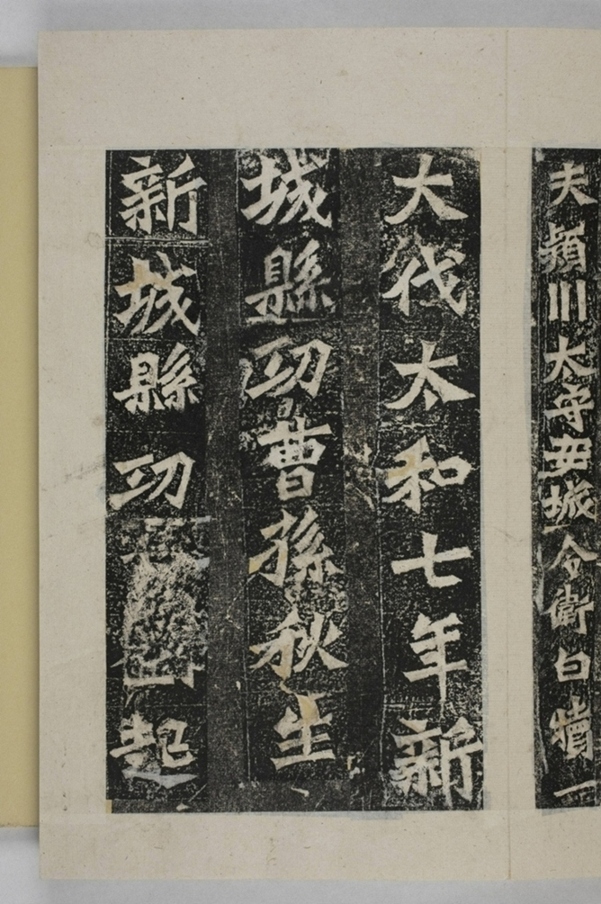 夫潁川大守安城令衛白犢
大伐太和七年新
城縣功曹孫秋生
新城縣功起